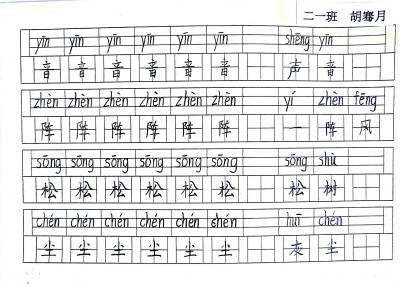 二一班 胡骞月
yīn yīn yīn yīn yīn yīn shēng yīn
音 音 音 音 音 音 声 音
zhèn zhèn zhèn zhèn zhèn zhèn yí zhèn fēng
阵 阵 阵 阵 阵 阵 一 阵 风
sōng sōng sōng sōng sōng sōng sōng shù
松 松 松 松 松 松 松 树
chén chén chén chén chén chén huī chén
尘 尘 尘 尘 尘 尘 灰 尘